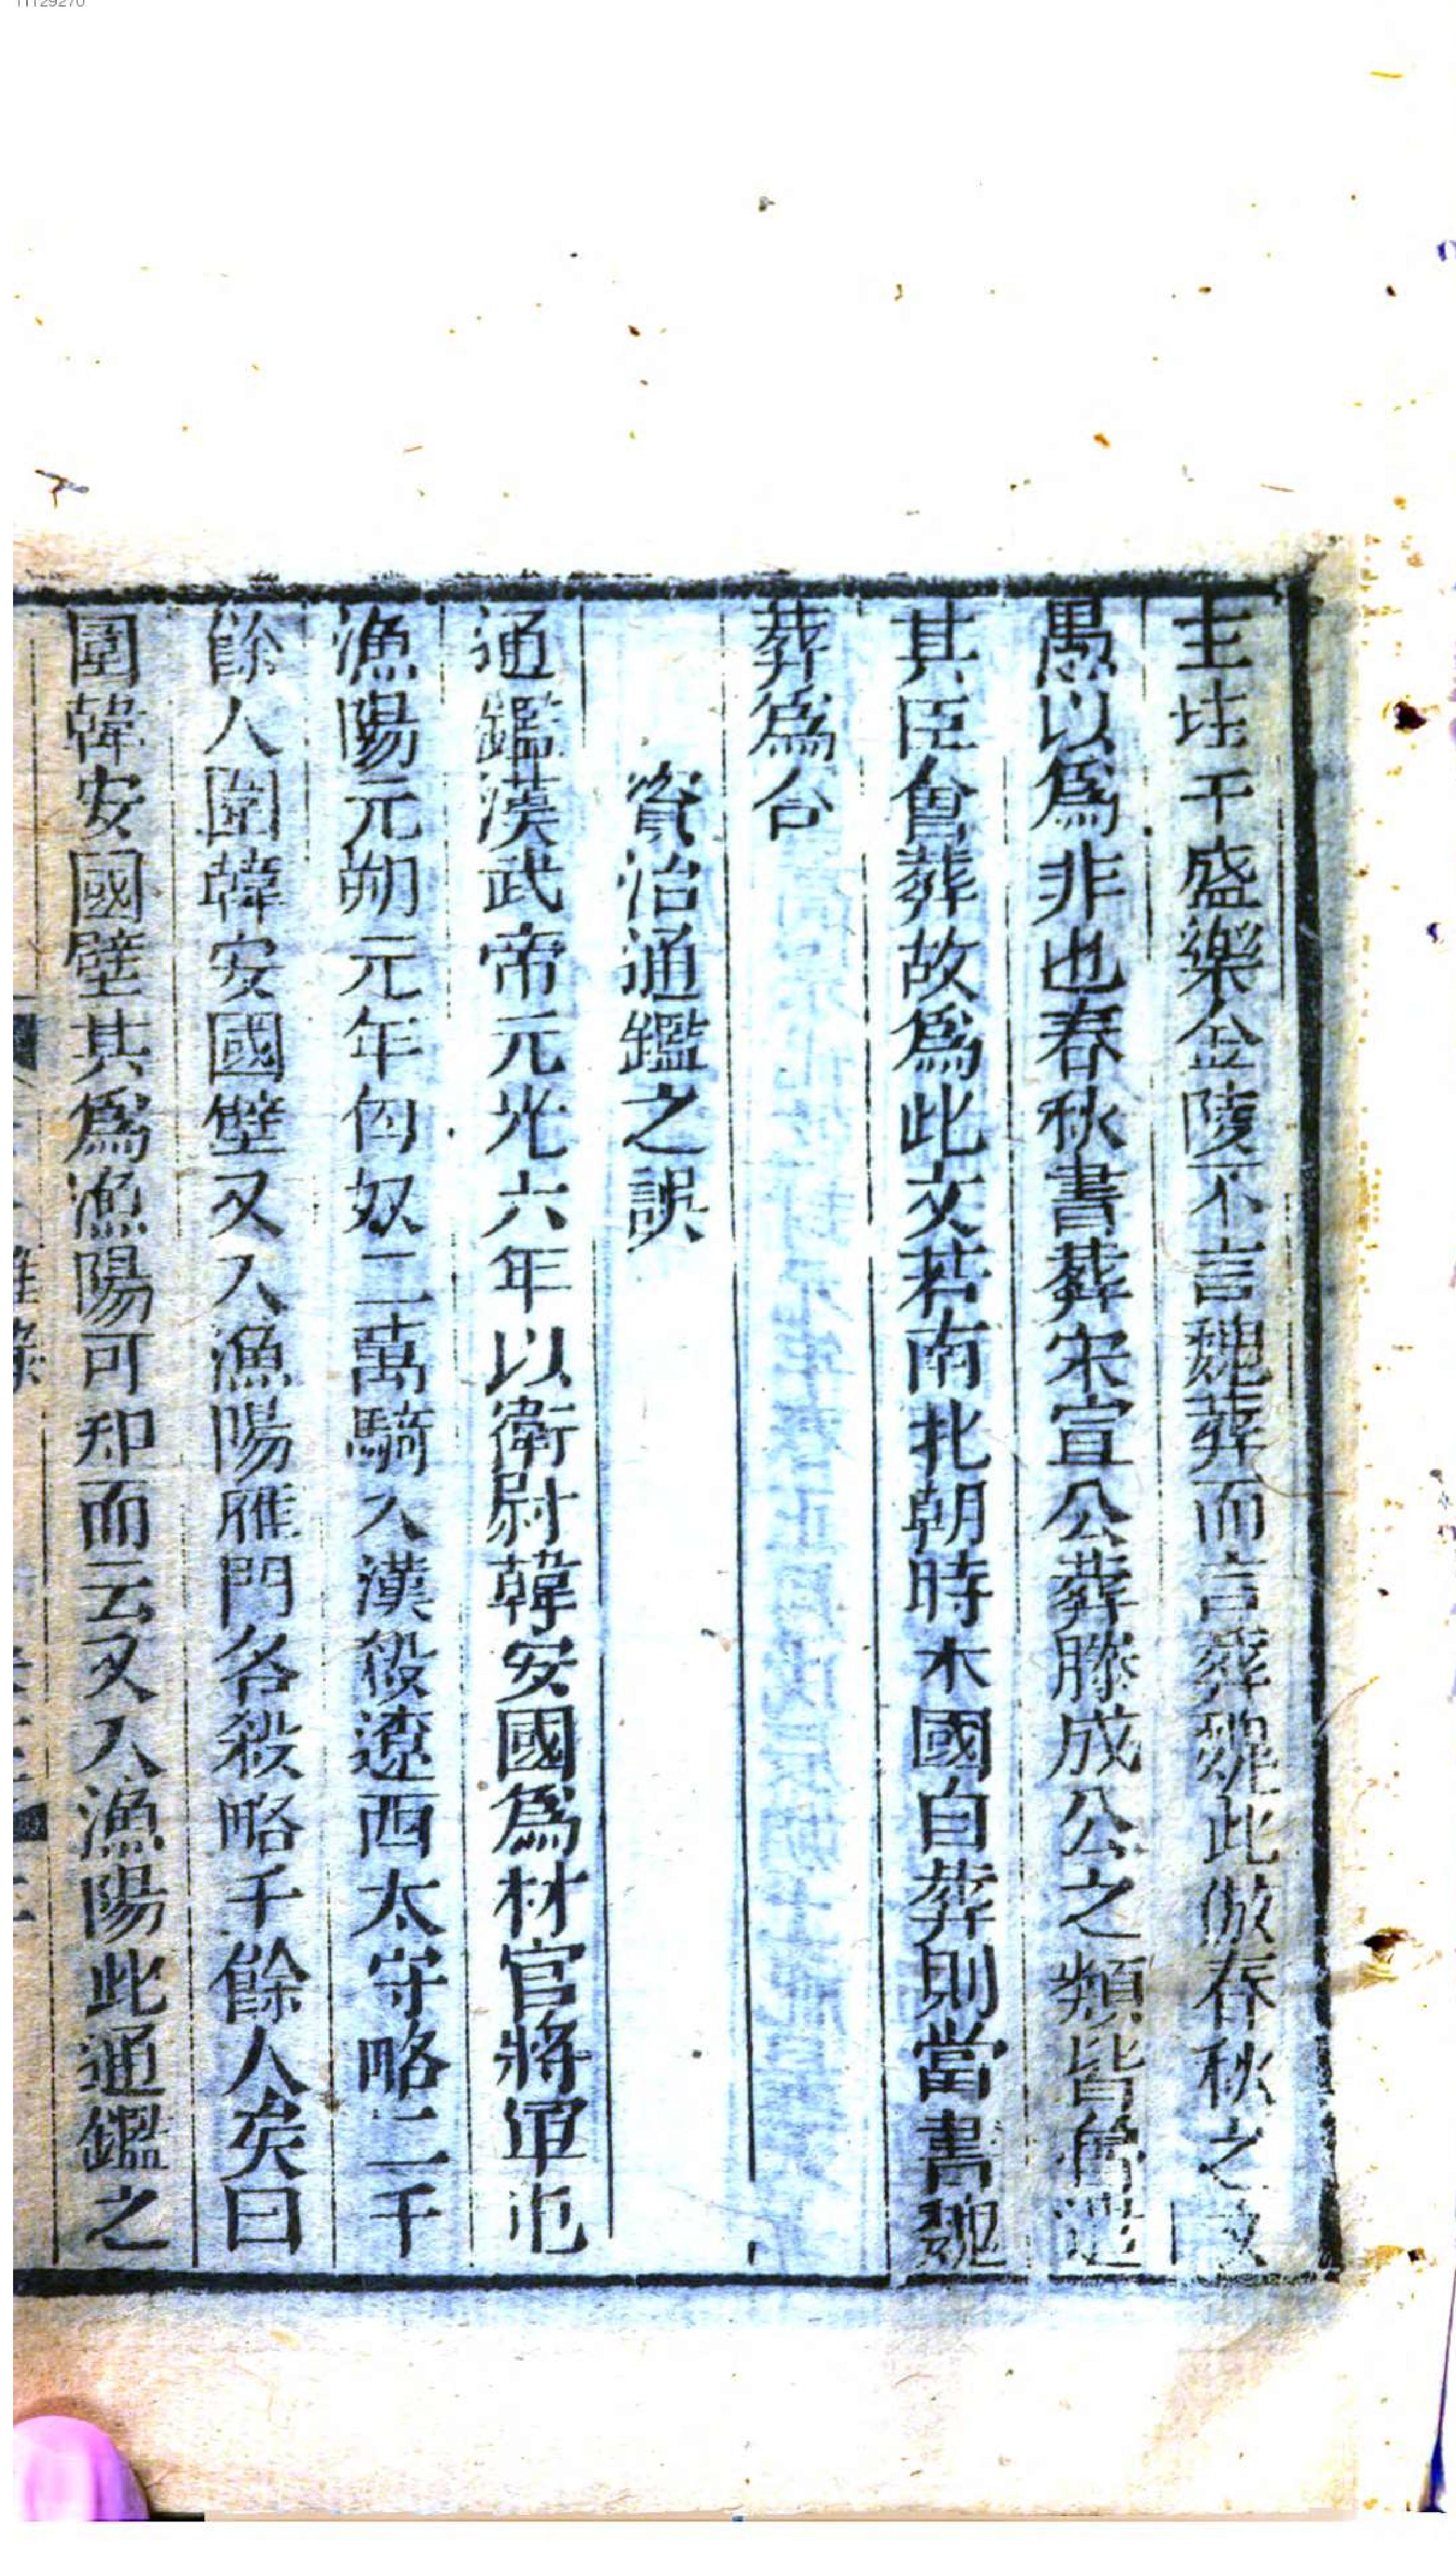 主珪于盛樂金陵不言魏葬而言葬魏此倣春秋之
愚以爲非也春秋書葬宋宣公葬滕成公之類皆魯遣
其臣會葬故爲此文若南北朝時本國自葬則當書魏
葬爲合
資治通鑑之誤
通鑑漢武帝元光六年以衛尉韓安國爲材官將軍屯
漁陽元朔元年匈奴二萬騎入漢殺遼西太守略二千
餘人圍韓安國壁又入漁陽雁門各殺略千餘人矣曰
圍韓安國壁其爲漁陽可知而云又入漁陽此通鑑之